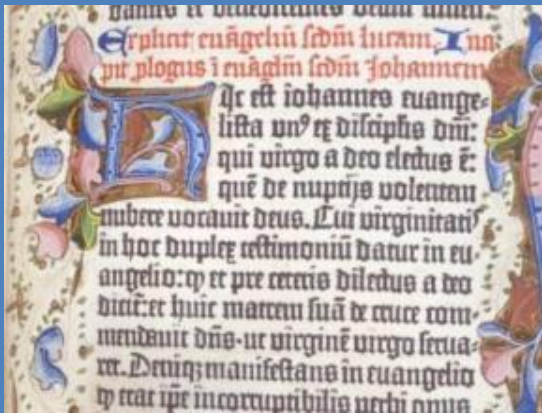 dantes et benedicentes deum amen.
Explicit euāgeliū scdm̄ lucam. Inci
pit ꝓlogus ī euāgliū scdm̄ Johannem
Hic est iohannes euange-
lista vn⁹ ex discipl̄is dn̄i:
qui virgo a deo electus ē:
quē de nuptijs volentem
nubere vocauit deus. Cui virginitat⁹
in hoc duplex testimoniū datur in eu
angelio: ꝙ et pre ceteris dilectus a deo
dicit᷑: et huic matrem suā de cruce com-
mendauit dn̄s. ut virginē virgo serua-
ret. Deniqꝫ manifestans in euangelio
ꝙ erat ip̄e incorruptibilis verbi opus